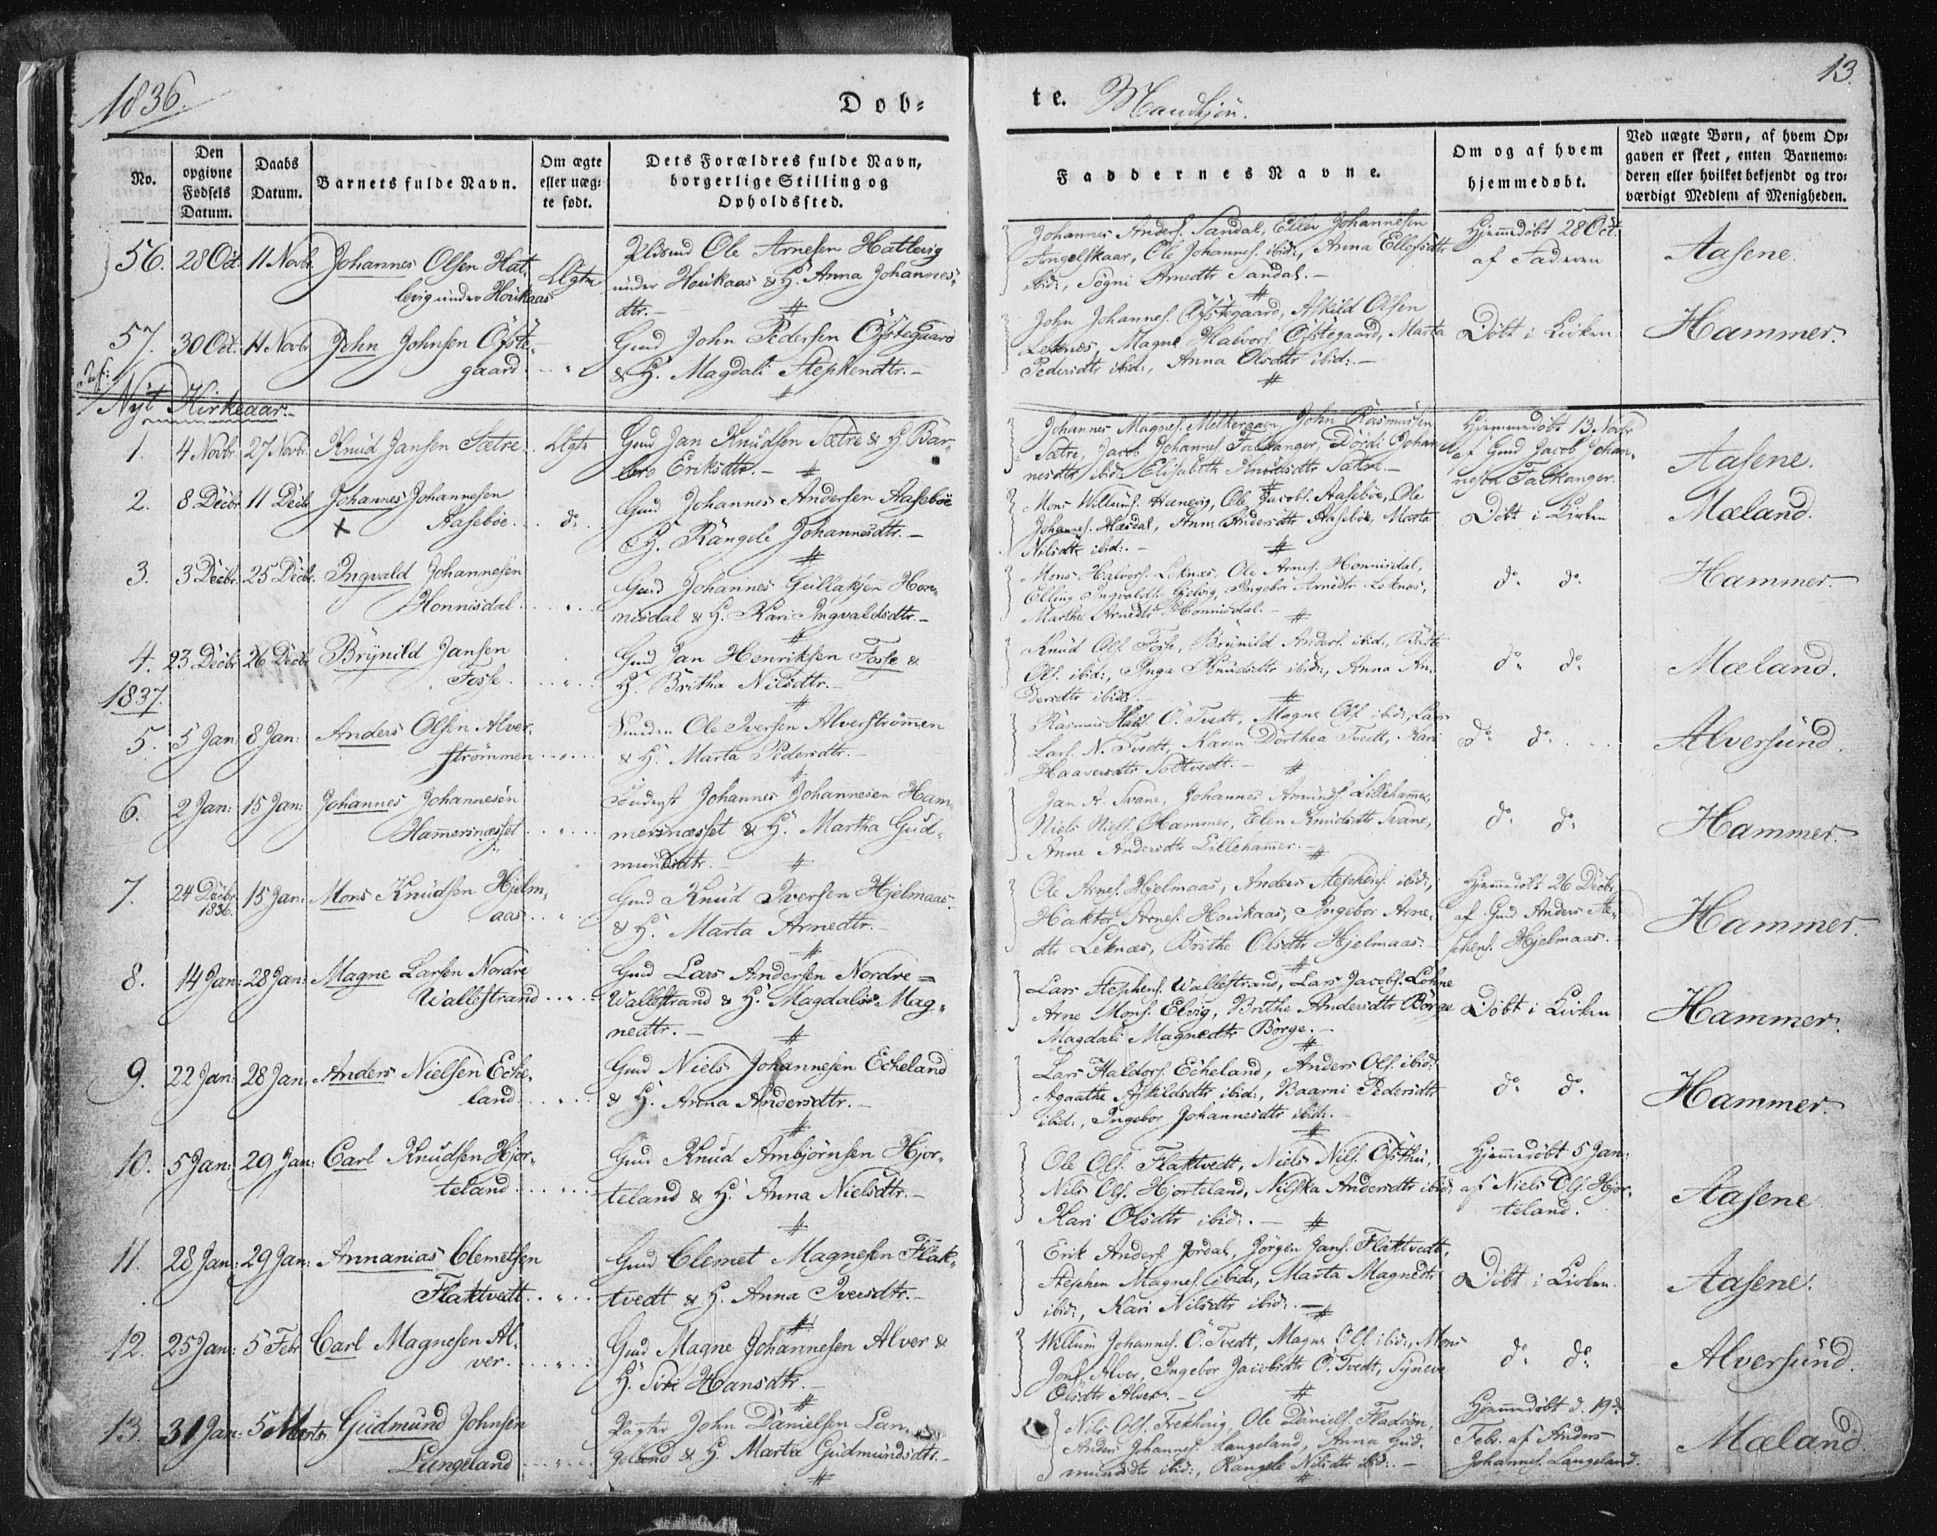 1836.
Døb-
te. Mandkjön.
13.
No.
Den opgivne Fødsels Datum.
Daabs Datum.
Barnets fulde Navn.
Om ægte eller uægte født.
Dets Forældres fulde Navn, borgerlige Stilling og Opholdssted.
Faddernes Navne.
Om og af hvem hjemmedøbt.
Ved uægte Børn, af hvem Opgaven er skeet, enten Barnemoderen eller hvilket bekjendt og troværdigt Medlem af Menigheden.
56. 28 Oct. 11 Novbr. Johannes Olsen Hat-
levig under Houkaas
Ægte
Ole Arnesen Hatlevig
under Houkaas & H. Anna Johannes-
dtr.-
Johannes Anders. Sandal, Ellen Johannesen
Ole Johannes. ibid:, Anna Ellefsdtr
ibid:, Sögni Arnedtr Sandal.-
Hjemmedöbt 28 Oct.
af Faderen
Aasene.
57. 30 Oct. 11 Novbr John Johnsen Öfste-
gaard
Gmd John Pedersen Öfstegaard
& H. Magdali Stephendtr.-
John Johannes. Öfstegaard, Askild Olsen
Leknes, Magne Halvors. Öfstegaard, Marta
Pedersdtr ibid:, Anna Olsdtr ibid:-
Döbt i Kirken
Hammer.
Nyt Kirkeaar.-
1. 4 Novbr. 27 Novbr. Knud Jansen Sætre. Ægte
Gmd Jan Knudsen Sætre & H. Bar-
bro Eriksdtr.-
Johannes Magnes. Melkeraaen, John Rasmussen
Sætre, Jacob Johannes. Falkanger, Dördi Johan-
nesdtr ibid: Elisabeth Knudsdtr Sætre.-
Hjemmedöbt 13 Novbr
af Gmd Jacob Johan-
nesen Falkanger.
Aasene.
2. 8 Decbr. 11 Decbr. Johannes Johannesen
Aaseböe. do
Gmd Johannes Andersen Aaseböe
H. Rangele Johannesdtr.-
Mons Willums. Hanevig, Ole Jacobs. Aaseböe, Ole
Johannes. Hæsdal, Anna Andersdtr Aaseböe, Marta
Nilsdtr ibid:.-
Döbt i Kirken
Mæland.
3. 3 Decbr. 25 Decbr. Ingvald Johannesen
Honnisdal.
Gmd Johannes Gullaksen Hon-
nisdal & H. Kari Ingvaldsdtr.-
Mons Halvors. Leknæs, Ole Arnes. Honnisdal,
Elling Ingvalds. Gjelvig, Ingebor Arnedtr Leknæs,
Marthe Arnedtr Honnisdal.-
do do
Hammer.
4. 23 Decbr 26 Decbr Brynild Jansen
Fosse.
Gmd Jan Henriksen Fosse &
H. Britha Nilsdtr.-
Knud Ols. Fosse, Brynild Anders. ibid:, Britte
Ols. ibid:, Inga Knudsdtr ibid:, Anna An-
dersdtr ibid:
do do
Mæland.
1837.
5. 5 Jan: 8 Jan: Anders Olsen Alver-
strömmen
Ole Iversen Alverströmmen
& H. Marta Pedersdtr.-
Rasmus Ö. Tvedt, Magne Ols. ibid:, Lars
Lars. N. Tvedt, Karen Dorthea Tvedt, Kari
Haaversdtr Toltvedt.-
do do
Alversund.
6. 2 Jan: 15 Jan: Johannes Johannesen
Hamersnæsset
Johannes Johannesen Ham-
mersnæsset & H. Martha Gud-
mundsdtr.
Jan A. Svane, Johannes Amunds. Lillehammer,
Niels Niels. Hammer, Elen Knudsdtr Svane,
Anne Andersdtr Lillehamer.-
do do
Hammer.
7. 24 Decbr 1836. 15 Jan: Mons Knudsen Hjelm-
aas
Gmd Knud Iversen Hjelmaas.
& H. Marta Arnedtr.-
Ole Arnes. Hjelmaas, Anders Stephens. ibid:,
Haktor Arnes. Houkaas, Ingebor Arne-
dtr Leknæs, Brithe Olsdtr Hjelmaas.-
Hjemmedöbt 26 Decbr
af Gmd Anders Ste-
phens. Hjelmaas.
Hammer.
8. 14 Jan: 28 Jan: Magne Larsen Nordre
Wallestrand
Gmd Lars Andersen Nordre=
Wallestrand & H. Magdali Mag-
nedtr.-
Lars Stephens. Wallestrand, Lars Jacobs. Löhne
Arne Mons. Elvig, Brithe Andersdtr Börge
Magdali Magnedtr Börge.-
Döbt i Kirken
Hammer.
9. 22 Jan: 28 Jan. Anders Nielsen Eche-
land.
Gmd Niels Johannesen Echeland
& H. Anna Andersdtr.-
Lars Haldors. Echeland, Anders Ols. ibid:
Agathe Askildsdtr ibid:, Baarni Pedersdtr
ibid:, Ingebor Johannesdtr ibid:.-
do do
Hammer.
10. 5 Jan: 29 Jan: Carl Knudsen Hjor-
teland.
Gmd Knud Ambjörnsen Hjor-
teland & H. Anna Nielsdtr.-
Ole Ols. Flaktvedt, Niels Niels. Öfsthu,
Nils Ols. Hjorteland, Nilska Andersdtr ibid:
Kari Olsdtr ibid:.-
Hjemmedöbt 5 Jan:
af Niels Ols. Hjor-
teland.
Aasene
11. 28 Jan: 29 Jan: Annanias Clemetsen
Flaktvedt
Gmd Clemet Magnesen Flak-
tvedt & H. Anna Iversdtr.-
Erik Anders. Jordal, Jörgen Jans. Flaktvedt,
Stephen Magnes. ibid:, Marta Magnedtr
ibid:, Kari Nilsdtr ibid:.-
Döbt i Kirken.
Aasene.
12. 25 Jan: 5 Febr Carl Magnesen Al-
ver.
Gmd Magne Johannesen Alver &
H. Siri Hansdtr.-
Willum Johannes. Ö. Tvedt, Magne Ols. ibid:, Mons
Alver, Ingebor Jacobsdtr Ö. Tvedt, Synneva
Olsdtr Alver.-
do do
Alversund.
13. 31 Jan: 5 Marts. Gudmund Johnsen
Lungeland
John Danielsen Lan-
geland & H. Marta Gudmundsdtr.-
Nils Ols. Ole Daniels. Fladöen,
Anders Johannes. Langeland, Anna Gud-
mundsdtr ibid:, Rangele Nilsdtr ibid:.-
Hjemmedöbt d. 19de
Febr. af Anders
Johannes. Langeland.
Mæland.